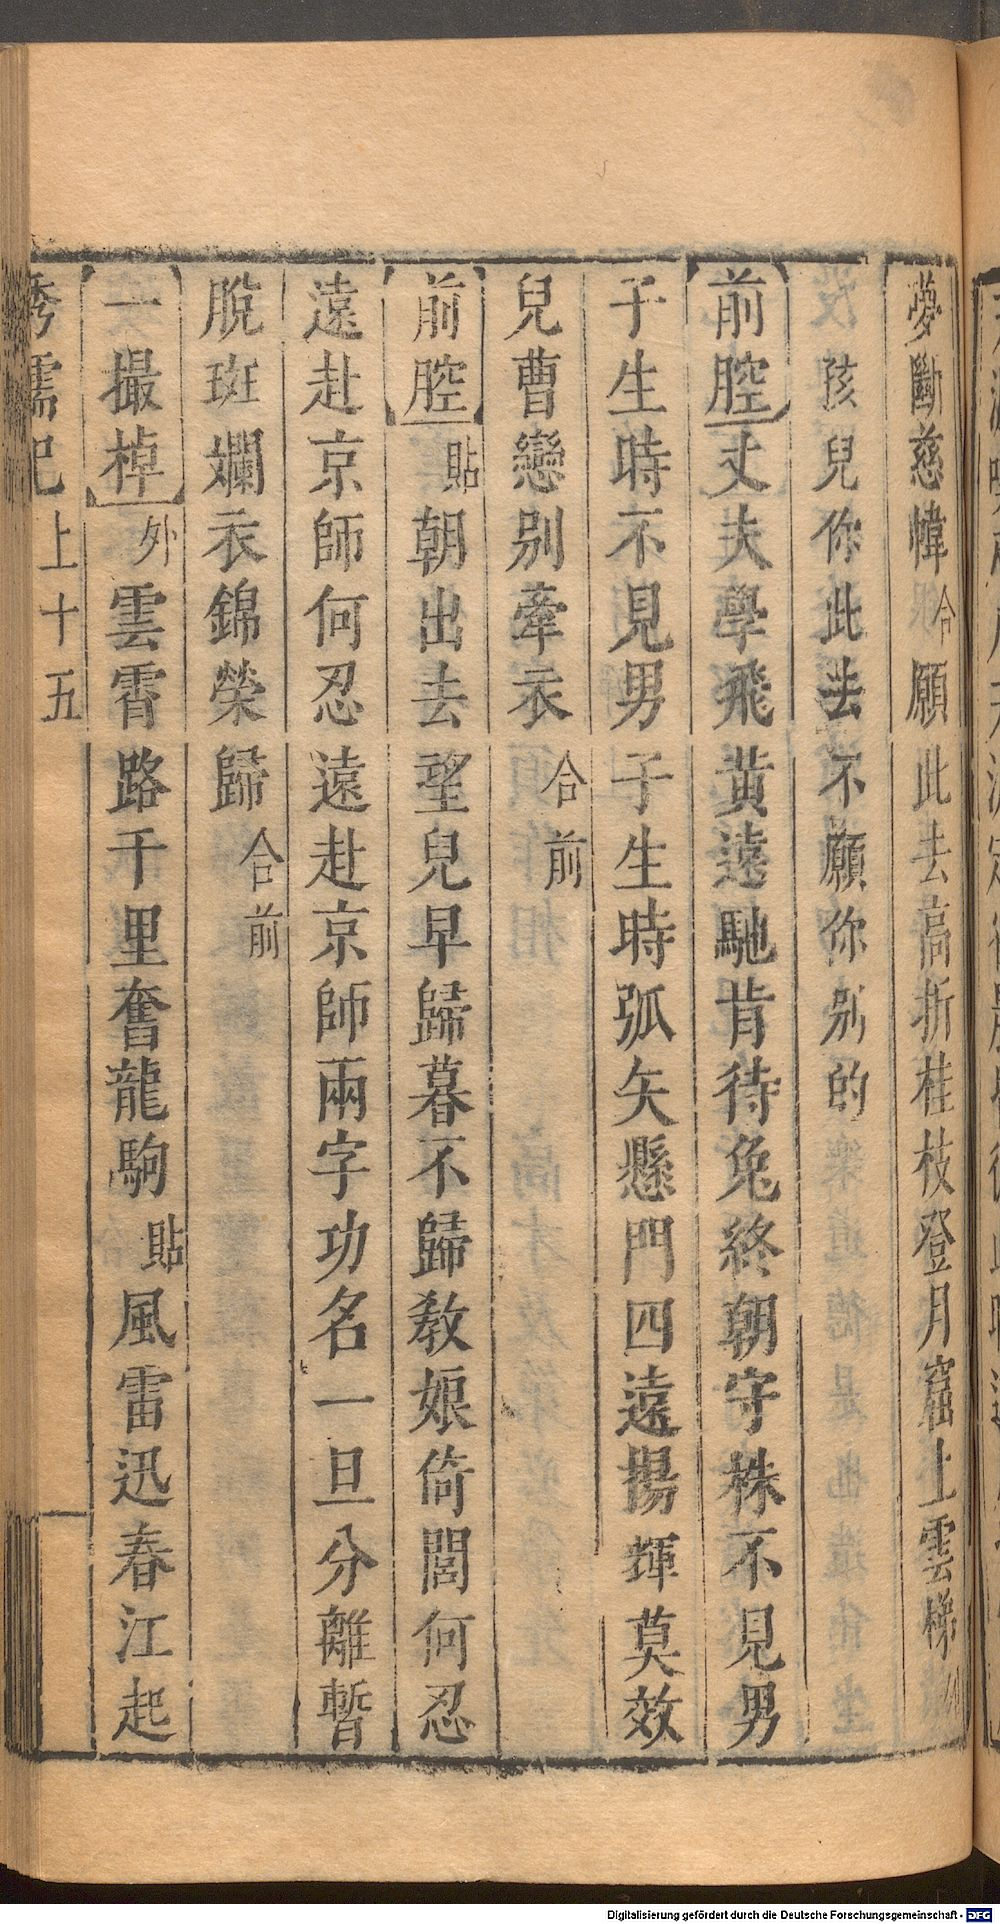 夢斷慈幃合願此去高折桂枝登月窟上雲梯
孩兒你此去不願你别的
前腔丈夫學飛黃遠馳肯待兔終朝守株不見男
子生時不見男子生時弧矢懸門四遠揚輝莫效
兒曹戀别牽衣合前
前腔貼朝出去望兒早歸暮不歸教娘倚閭何忍
遠赴京師何忍遠赴京師兩字功名一旦分離暫
脫斑斕衣錦榮歸合前
一撮棹外雲霄路千里奮龍駒貼風雷迅春江起
上十五
Digitalisierung gefördert durch die Deutsche Forschungsgemeinschaft - DFG